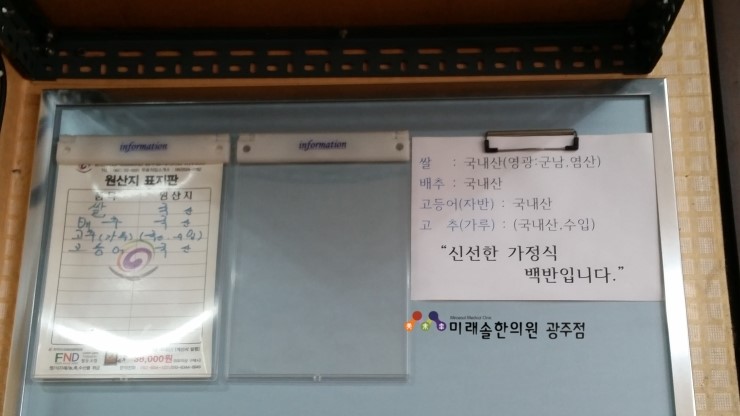 information
원산지 표지판
원산지
쌀 국산
배추 국산
고추(가루)
고등어 국산
FND
39,000원
information
쌀 : 국내산(영광:군남,염산)
배추 : 국내산
고등어(자반) : 국내산
고 추(가루) : (국내산,수입)
“신선한 가정식
백반입니다.”
미래솔한의원 광주점